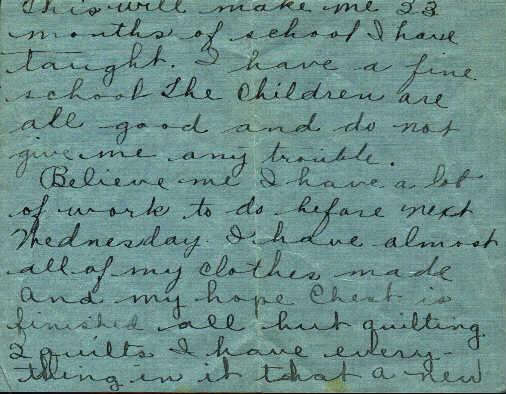 This will make me 23
months of school I have
taught. I have a fine
school The Children are
all good and do not
give me any trouble.
Believe me I have a lot
of work to do before next
Wednesday. I have almost
all of my clothes made
and my hope Chest is
finished all but quilting
2 quilts I have every-
thing in it that a new